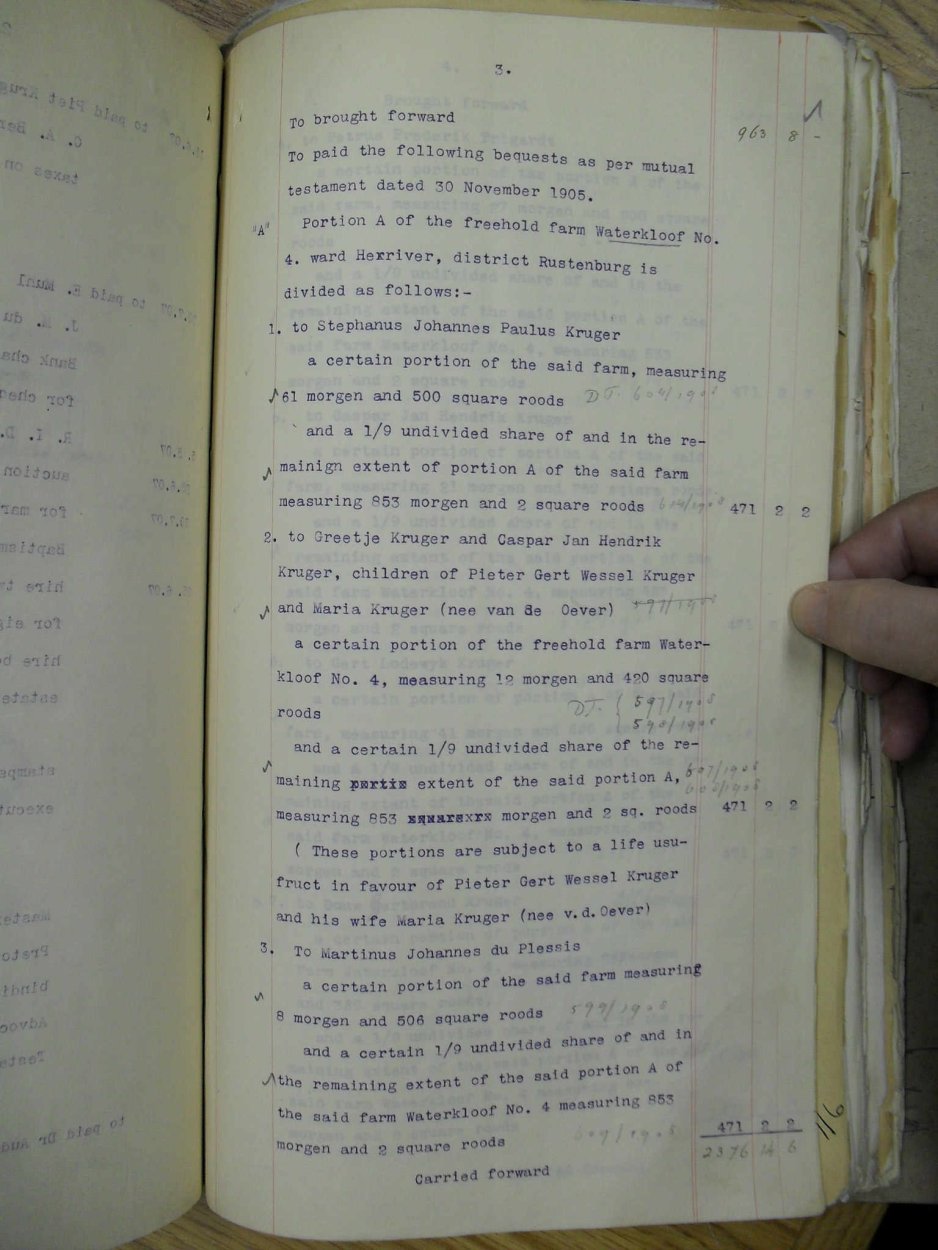 3.
To brought forward 963 8 -
To paid the following bequests as per mutual
testament dated 30 November 1905.
"A" Portion A of the freehold farm Waterkloof No.
4. ward Hexriver, district Rustenburg is
divided as follows:-
1. to Stephanus Johannes Paulus Kruger
a certain portion of the said farm, measuring
61 morgen and 500 square roods D.T. 604/1908
and a 1/9 undivided share of and in the re-
mainign extent of portion A of the said farm
measuring 853 morgen and 2 square roods 471 2 2
2. to Greetje Kruger and Caspar Jan Hendrik
Kruger, children of Pieter Gert Wessel Kruger
and Maria Kruger (nee van de Oever) 597/1908
a certain portion of the freehold farm Water-
kloof No. 4, measuring 12 morgen and 420 square
roods D.T. { 597/1908
598/1908
and a certain 1/9 undivided share of the re-
maining extent of the said portion A,
measuring 853 morgen and 2 sq. roods 471 2 2
( These portions are subject to a life usu-
fruct in favour of Pieter Gert Wessel Kruger
and his wife Maria Kruger (nee v.d.Oever)
3. To Martinus Johannes du Plessis
a certain portion of the said farm measuring
8 morgen and 506 square roods 599/1908
and a certain 1/9 undivided share of and in
the remaining extent of the said portion A of
the said farm Waterkloof No. 4 measuring 853
morgen and 2 square roods 609/1908 471 2 2
2376 14 6
Carried forward
116